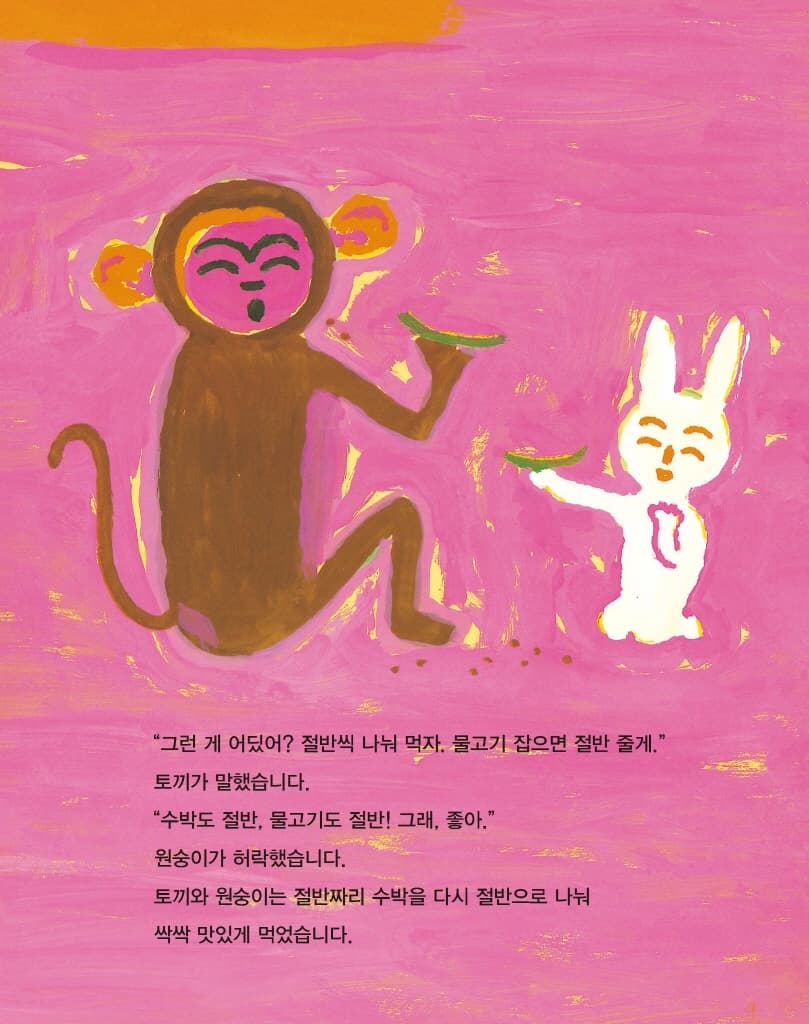 “그런 게 어딨어? 절반씩 나눠 먹자. 물고기 잡으면 절반 줄게.”
토끼가 말했습니다.
“수박도 절반, 물고기도 절반! 그래, 좋아.”
원숭이가 허락했습니다.
토끼와 원숭이는 절반짜리 수박을 다시 절반으로 나눠
싹싹 맛있게 먹었습니다.